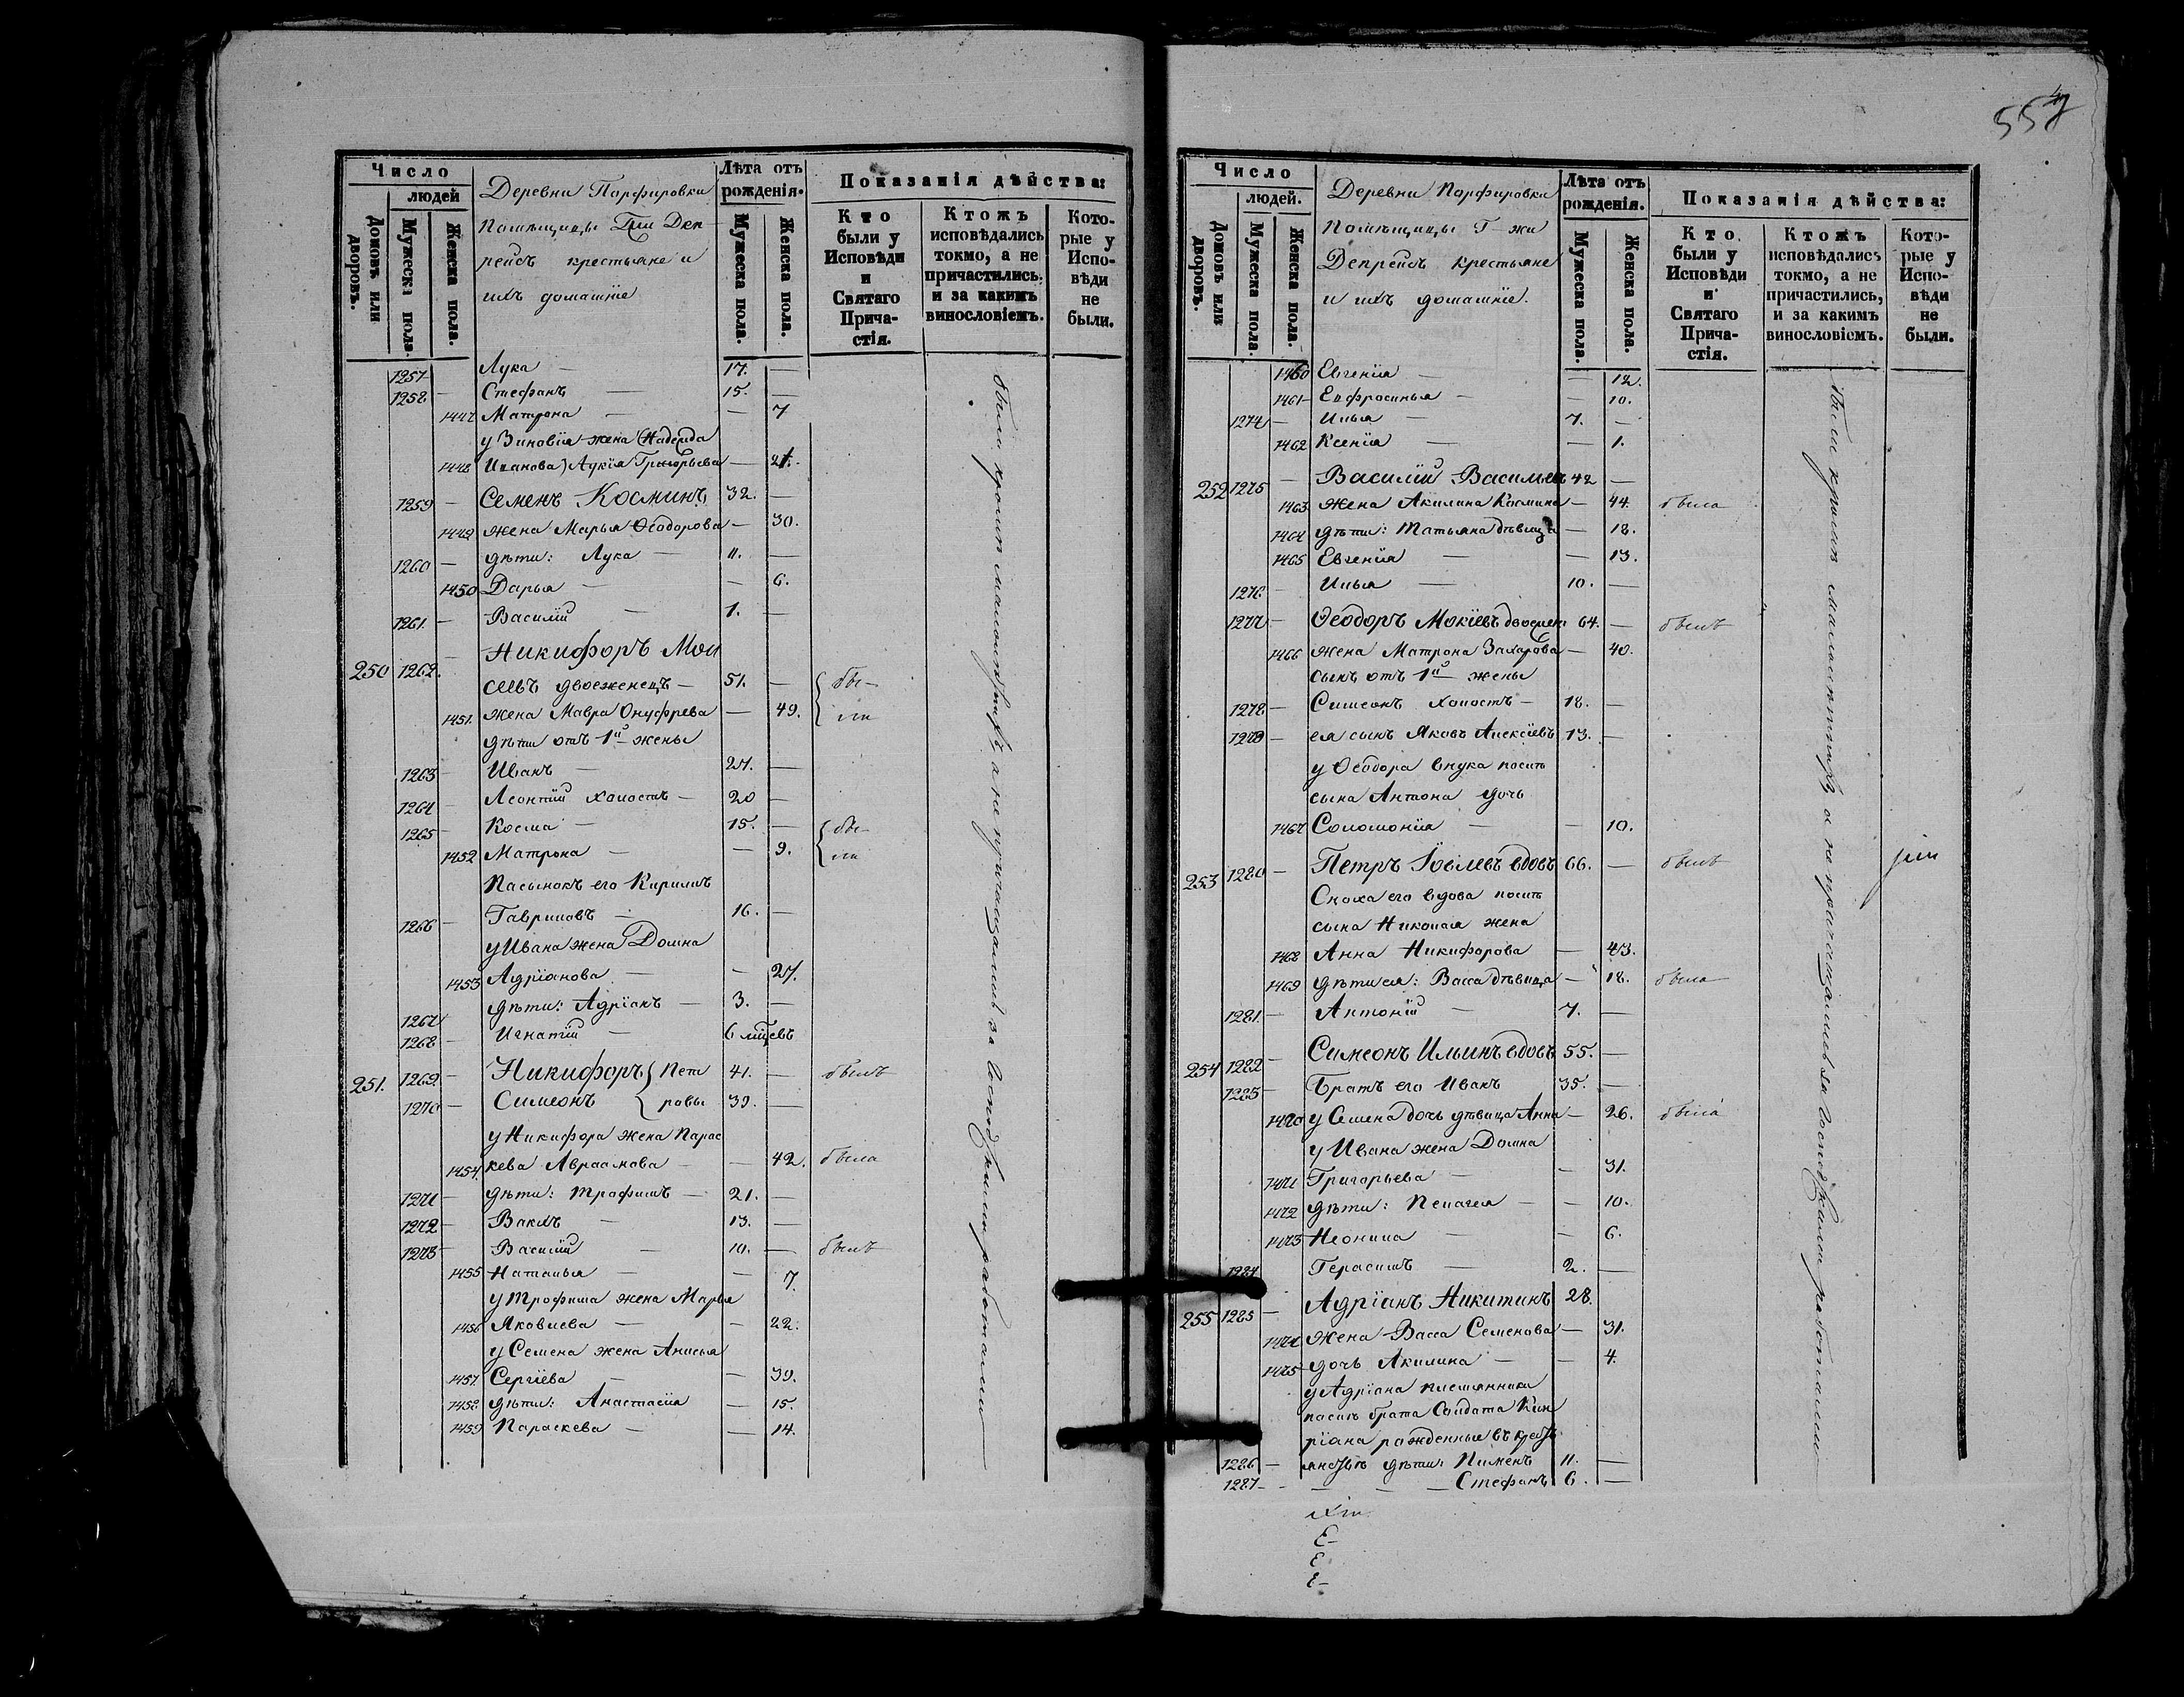 557
Число
людей
Домовъ или дворовъ.
Мужеска пола.
Женска пола.
Деревни Парфировки
Помѣщицы Гжи Деп
рейсъ крестьяне и
ихъ домашніе
Лѣта отъ рожденія.
Мужеска пола.
Женска пола.
Показанія дѣйства:
Кто были у Исповѣди и Святаго Прича-стія.
Ктожъ исповѣдались токмо, а не причастились, и за какимъ винословіемъ.
Кото-рые у Испо-вѣди не были.
1257 Лука — 17. —
1258 — Стефанъ — 15. —
1447 Матрона — — 7
у Зиновія жена (Надежда
1448 Иванова) Лукія Григорьева — 21.
1259 — Семенъ Косминъ 32. —
1449 жена Марья Ѳеодорова — 30.
1260 — дѣти: Лука — 11. —
1450 Дарья — — 6.
1261. — Василій — 1. —
Никифоръ Мои
250 1262. сѣевъ двоеженецъ — 51. — бы-
1451. жена Мавра Онуфрева — 49. ли
дѣти отъ 1й жены
1263 — Иванъ — 27. —
1264 — Леонтій холостъ — 20 —
1265 — Косма — 15. — бы-
1452 Матрона — — 9. ли
Пасынокъ его Кирилъ
1266 — Гавриловъ — 16. —
у Ивана жена Домна
1453 Адріанова — — 27.
1267 дѣти: Адріанъ — 3. —
1268 — Игнатій — 6 мцевъ
251. 1269 — Никифоръ { Пет 41. — былъ
1270 — Симеонъ { ровы 39. —
у Никифора жена Парас
1454 кева Авраамова — — 42. была
1271 — дѣти: Трофимъ — 21. —
1272 — Вакхъ — 13. —
1273 — Василій — 10. — былъ
1455 Наталья — — 7.
у Трофима жена Марья
1456 Яковлева — — 22.
у Семена жена Анисья
1457 Сергіева — — 39.
1458 дѣти: Анастасія — 15.
1459 Параскева — — 14.
были кромѣ малолѣтнихъ, а не причащались за господскими работами
Число
людей.
Домовъ или дворовъ.
Мужеска пола.
Женска пола.
Деревни Парфировки
Помѣщицы Г-жи
Депрейсъ крестьяне
и ихъ домашніе.
Лѣта отъ рожденія.
Мужеска пола.
Женска пола.
Показанія дѣйства:
Кто были у Исповѣди и Святаго Прича-стія.
Ктожъ исповѣдались токмо, а не причастились, и за какимъ винословіемъ.
Кото-рые у Испо-вѣди не были.
1460 Евгенія — — 12.
1461 — Евфросинья — — 10.
1274 — Илья — 7. —
1462 Ксенія — — 1.
252 1275 — Василій Васильевъ 42 —
1463 жена Акилина Космина — 44. была
1464 дѣти: Татьяна дѣвица — 18.
1465 Евгенія — — 13.
1276 — Илья — 10. —
1277 — Ѳеодоръ Мокіевъ двоежен. 64. — былъ
1466 жена Матрона Захарова — 40.
сынъ отъ 1й жены
1278 — Симеонъ холостъ — 18. —
1279 — ея сынъ Яковъ Алексіевъ 13. —
у Ѳеодора внука послѣ
сына Антона дочь
1467 Соломонія — — 10.
253 1280 — Петръ Іовлевъ вдовъ 66. — былъ
Сноха его вдова послѣ
сына Николая жена
1468 Анна Никифорова — 43.
1469 дѣти ея: Васса дѣвица — 18. была
1281. — Антоній — 7. —
254 1282 — Симеонъ Ильинъ вдовъ 55. —
1283 — Братъ его Иванъ 35. —
1470 у Семена дочь дѣвица Анна — 26. была
у Ивана жена Домна
1471 Григорьева — — 31.
1472 дѣти: Пелагея — — 10.
1473 Неонила — — 6.
1284 Герасимъ — 2. —
255 1285 — Адріанъ Никитинъ 28.
1474 жена Васса Семенова — 31.
1475 дочь Акилина — — 4.
у Адріана племянники
послѣ брата Солдата Кип
ріана рожденные въ крест
1286 — янствѣ дѣти: Пименъ 11. —
1287 — — — — Стефанъ 6. —
были кромѣ малолѣтнихъ, а не причащались за господскими работами
Е-
Е
Е-